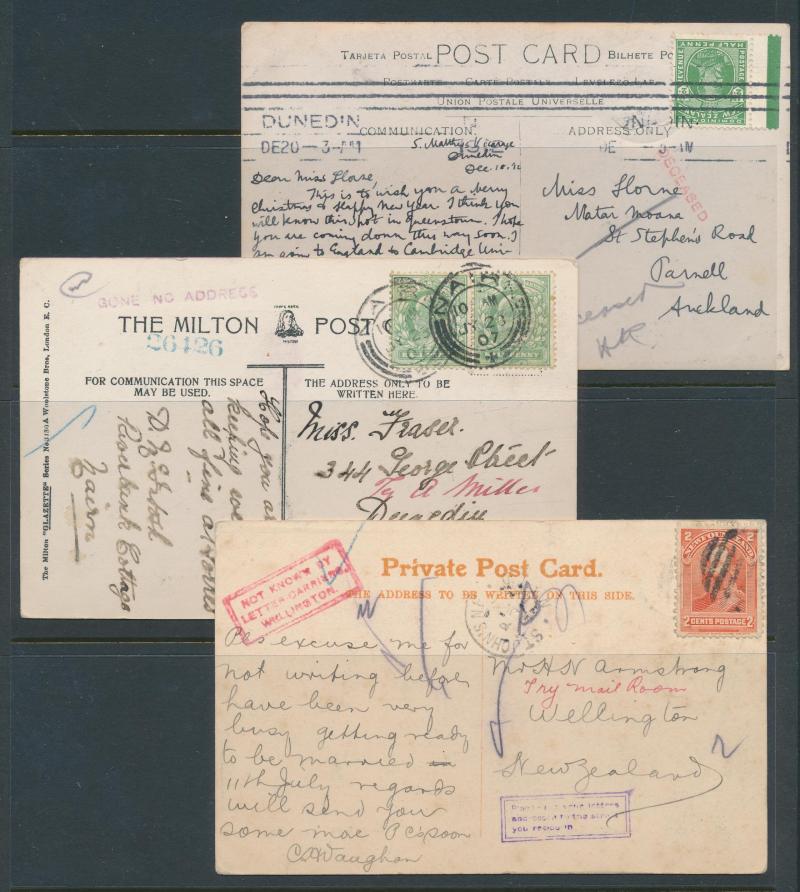 TARJETA POSTAL POST CARD BILHETE
POSTKARTE CARTE POSTALE LEVELEZŐ-LAP
UNION POSTALE UNIVERSELLE
POSTAGE REVENUE
HALF PENNY
DOMINION OF
NEW ZEALAND
DUNEDIN
DE20 - 3-AM
COMMUNICATION
ADDRESS ONLY
DECEASED
Dunedin
Dec. 18.12
Dear Miss Horne,
This is to wish you a merry
Christmas & Happy New Year. I think you
will know this spot in Queenstown. I hope
you are coming down this way soon. I
am going to England to Cambridge Uni-
Miss Horne
Matai Moana
St Stephen's Road
Parnell
Auckland
GONE NO ADDRESS
THE MILTON POST
26426
NAIRN
10 AM
JY 23
07
FOR COMMUNICATION THIS SPACE
MAY BE USED.
THE ADDRESS ONLY TO BE
WRITTEN HERE.
The Milton "GLAZETTE" Series No. Woolstone Bros, London E.C.
Hope you are
keeping well
all fine at Forres
Cottage
Nairn
Miss. Fraser.
344 George Street
Try A Miller
Dunedin
Private Post Card.
THE ADDRESS TO BE WRITTEN ON THIS SIDE.
NOT KNOWN BY
LETTER-CARRIERS,
WELLINGTON.
ST JOHN'S
NEWFOUNDLAND
2 CENTS POSTAGE 2
Pls excuse me for
not writing before
have been very
busy getting ready
to be married
11th July regards
will send you
some more P Cs soon
C Waughan
Mr H N Armstrong
Try Mail Room
Wellington
New Zealand
letters
addressed to the street
you reside in.